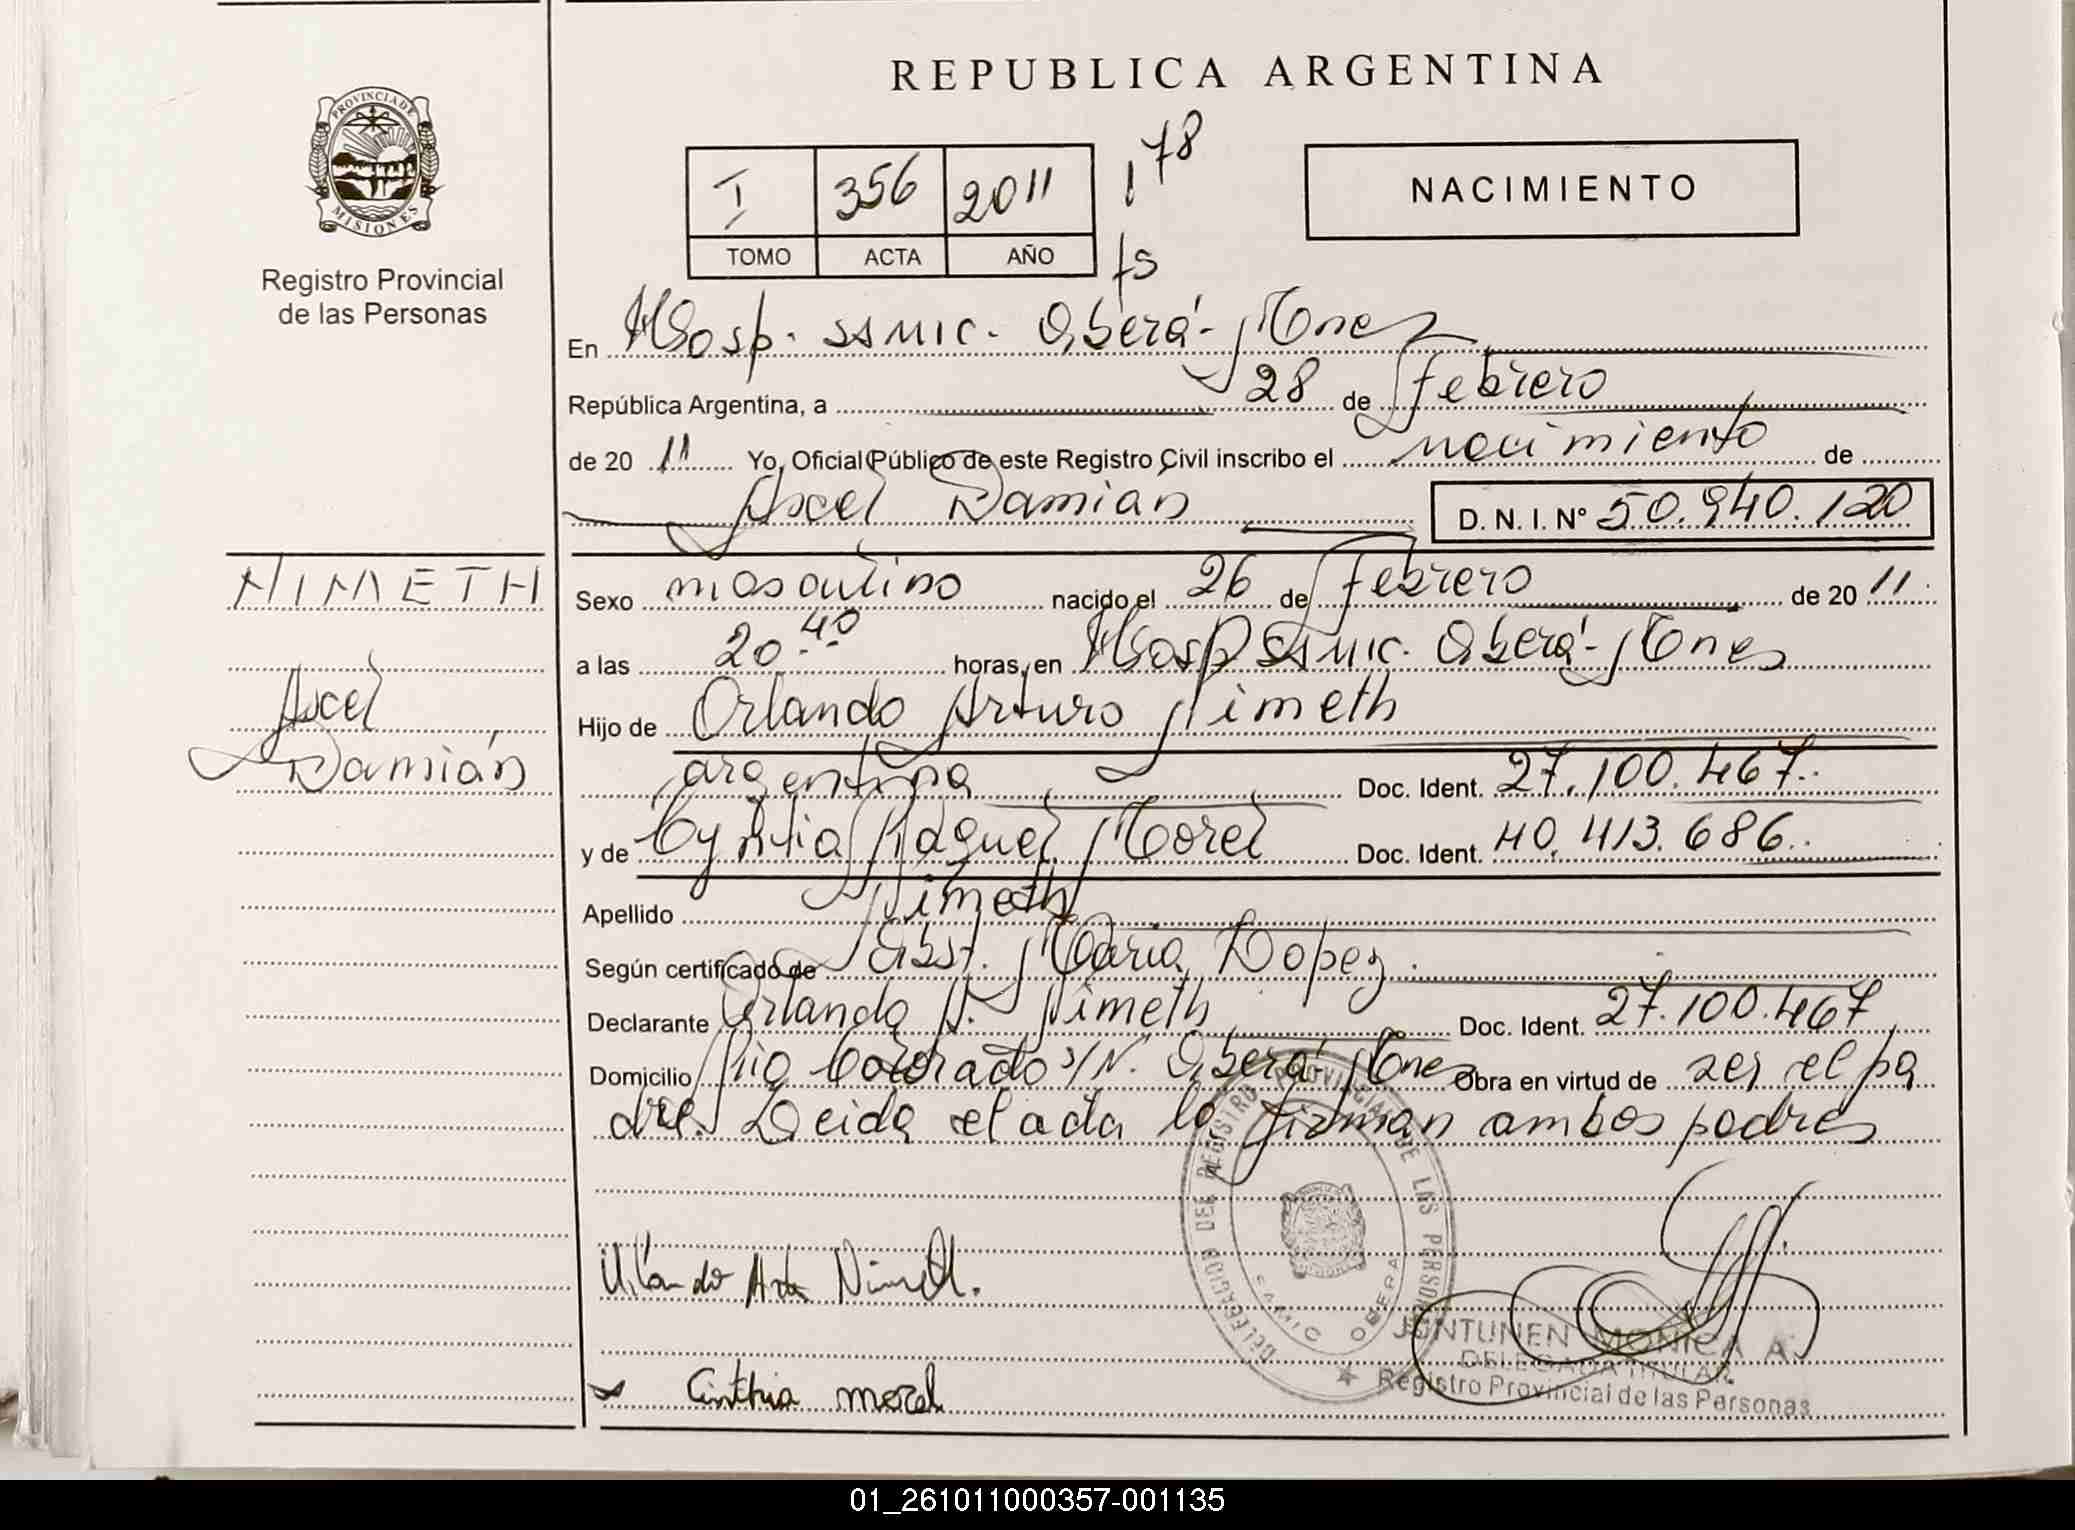 REPUBLICA ARGENTINA
PROVINCIA DE
MISIONES
Registro Provincial
de las Personas
I 356 2011 178
TOMO ACTA AÑO fs
NACIMIENTO
En Hosp. SAMIC. Oberá - Mnes
República Argentina, a 28 de febrero
de 20 11 Yo, Oficial Público de este Registro Civil inscribo el nacimiento de
Axcel Damián D. N. I. Nº 50.940.120
NIMETH
Axcel
Damián
Sexo masculino nacido el 26 de febrero de 20 11
a las 20.40 horas, en Hosp SAMIC. Oberá - Mnes
Hijo de Orlando Arturo Nimeth
argentina Doc. Ident. 27.100.467.
y de Cyntia Raquel Morel Doc. Ident. 40.413.686.
Apellido Nimeth
Según certificado de Obst. Maria Lopez.
Declarante Orlando A. Nimeth Doc. Ident. 27.100.467
Domicilio Rio Colorado s/N. Oberá - Mnes Obra en virtud de ser el pa
dre. Leida el acta la firman ambos padres
Nimeth.
Cinthia morel
DELEGACION DEL REGISTRO PROVINCIAL DE LAS PERSONAS
SAMIC OBERA
JUNTUNEN MONICA A.
DELEGADA TITULAR
Registro Provincial de las Personas
01_261011000357-001135